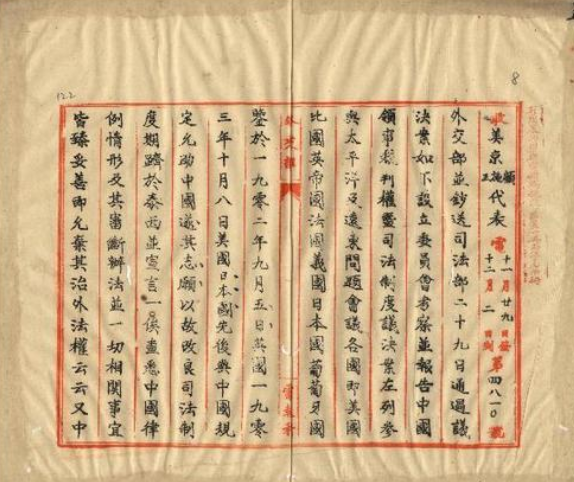 8
122
收美京顧施王代表電十一月廿九日發十二月二日到第四八一〇號
外交部並鈔送司法部二十九日通過議
決案如下設立委員會考察並報告中國
領事裁判權暨司法制度議決案在列參
與太平洋及遠東問題會議各國即美國
比國英帝國法國義國日本國葡萄牙國
外交部
電報
鑒於一九〇二年九月五日英國一九〇
三年十月八日美國日本國先後與中國規
定允助中國遂其志願以故改良司法制
度期躋於泰西並宣言一俟查悉中國律
例情形及其審斷辦法並一切相關事宜
皆臻妥善即允棄其治外法權云云又中